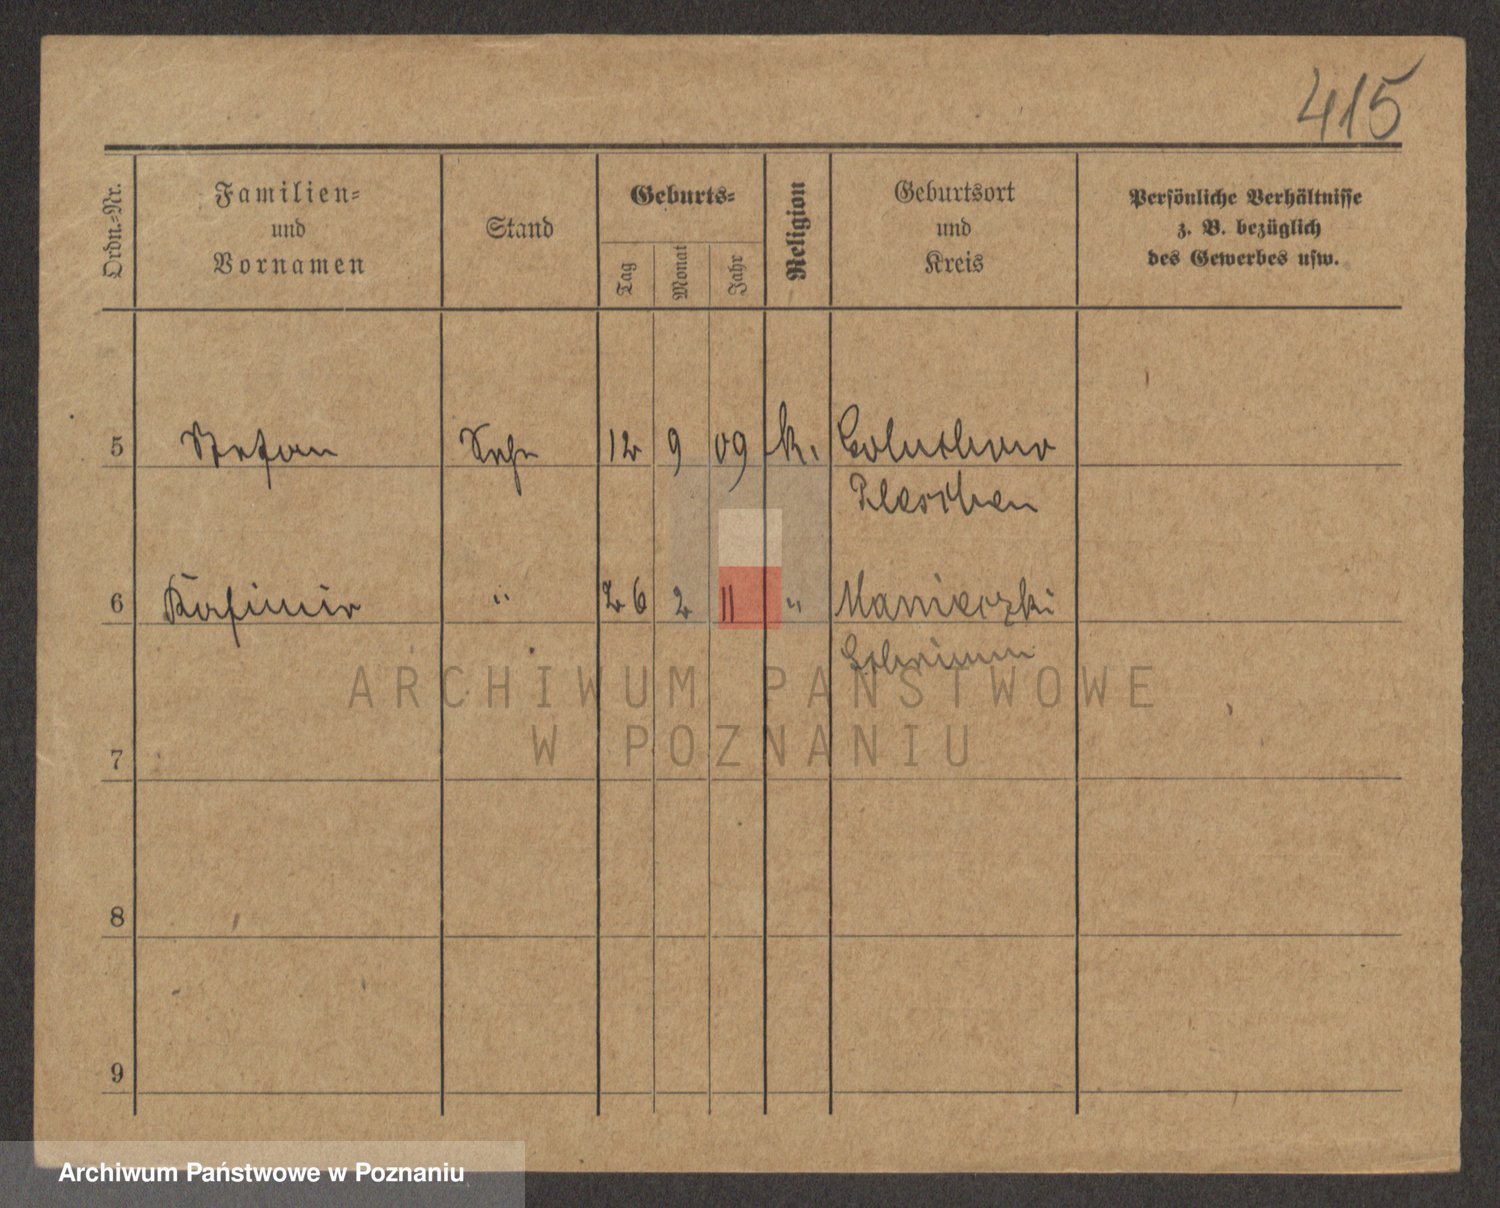 415
Ordn.-Nr.
Familien-
und
Vornamen
Stand
Geburts-
Tag
Monat
Jahr
Religion
Geburtsort
und
Kreis
Persönliche Verhältnisse
z. B. bezüglich
des Gewerbes usw.
5 Stefan Sohn 12 9 09 k.
Pleschen
6 Kasimir " 26 2 11 " Manieczki
Schrimm
ARCHIWUM PAŃSTWOWE
W POZNANIU
7
8
9
Archiwum Państwowe w Poznaniu